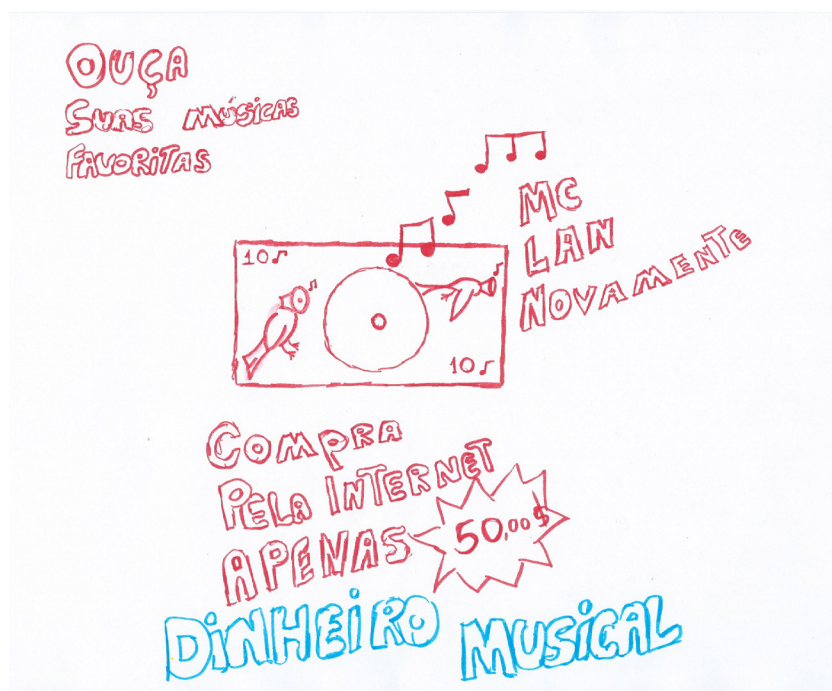 OUÇA
SUAS MÚSICAS
FAVORITAS
MC
LAN
NOVAMENTE
10
10
COMPRA
PELA INTERNET
APENAS
50,00$
DINHEIRO MUSICAL